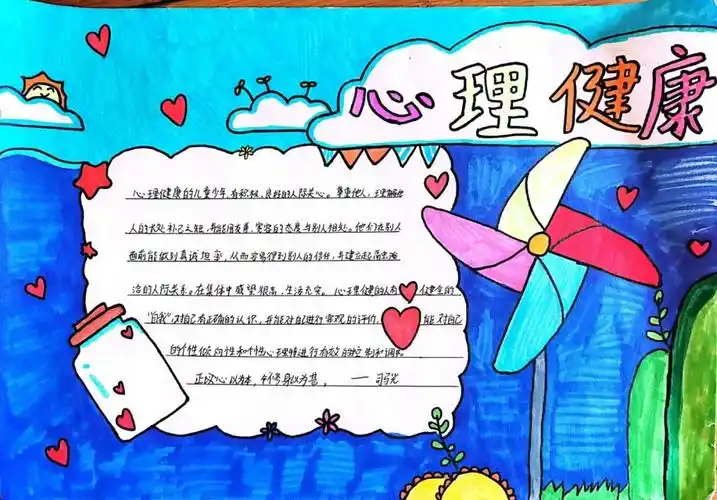 心理健康
心理健康的儿童少年,有积极、良好的人际关心。尊重他人,理解他
人的长处补己之短,并能用友善、宽容的态度与别人相处。他们在别人
面前能做到真诚坦率,从而容易得到别人的信任,并建立起高忠
洽的人际关系。在集体中威望很高,生活充实。心理健康的人有健全的
"自我"对自己有正确的认识,并能对自己进行客观的评价,能对自己
的个性倾向性和个性心理特进行有效的控制和调
正以心以为本,修身以为基。——司马光